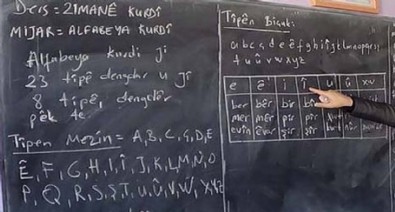 Ders = ZIMANÊ KURDÎ
MIJAR = ALFABEYA KURDÎ
Alfabeya kurdî ji
23 tîpê dengdar û ji
8 tîpê, dengdêr
pêk tê
Tîpên Mezin = A, B, C, Ç, D, E
Ê, F, G, H, I, Î, J, K, L, M, N, O
P, Q, R, S, Ş, T, U, Û, V, W, X, Y, Z
Tîpên Biçûk:
a b c ç d e ê f g h i î j k l m n o p q r s ş
t u û v w x y z
e ê i î u û xw
ber bêr bir
mer mêr pir pîr
evîn êvar